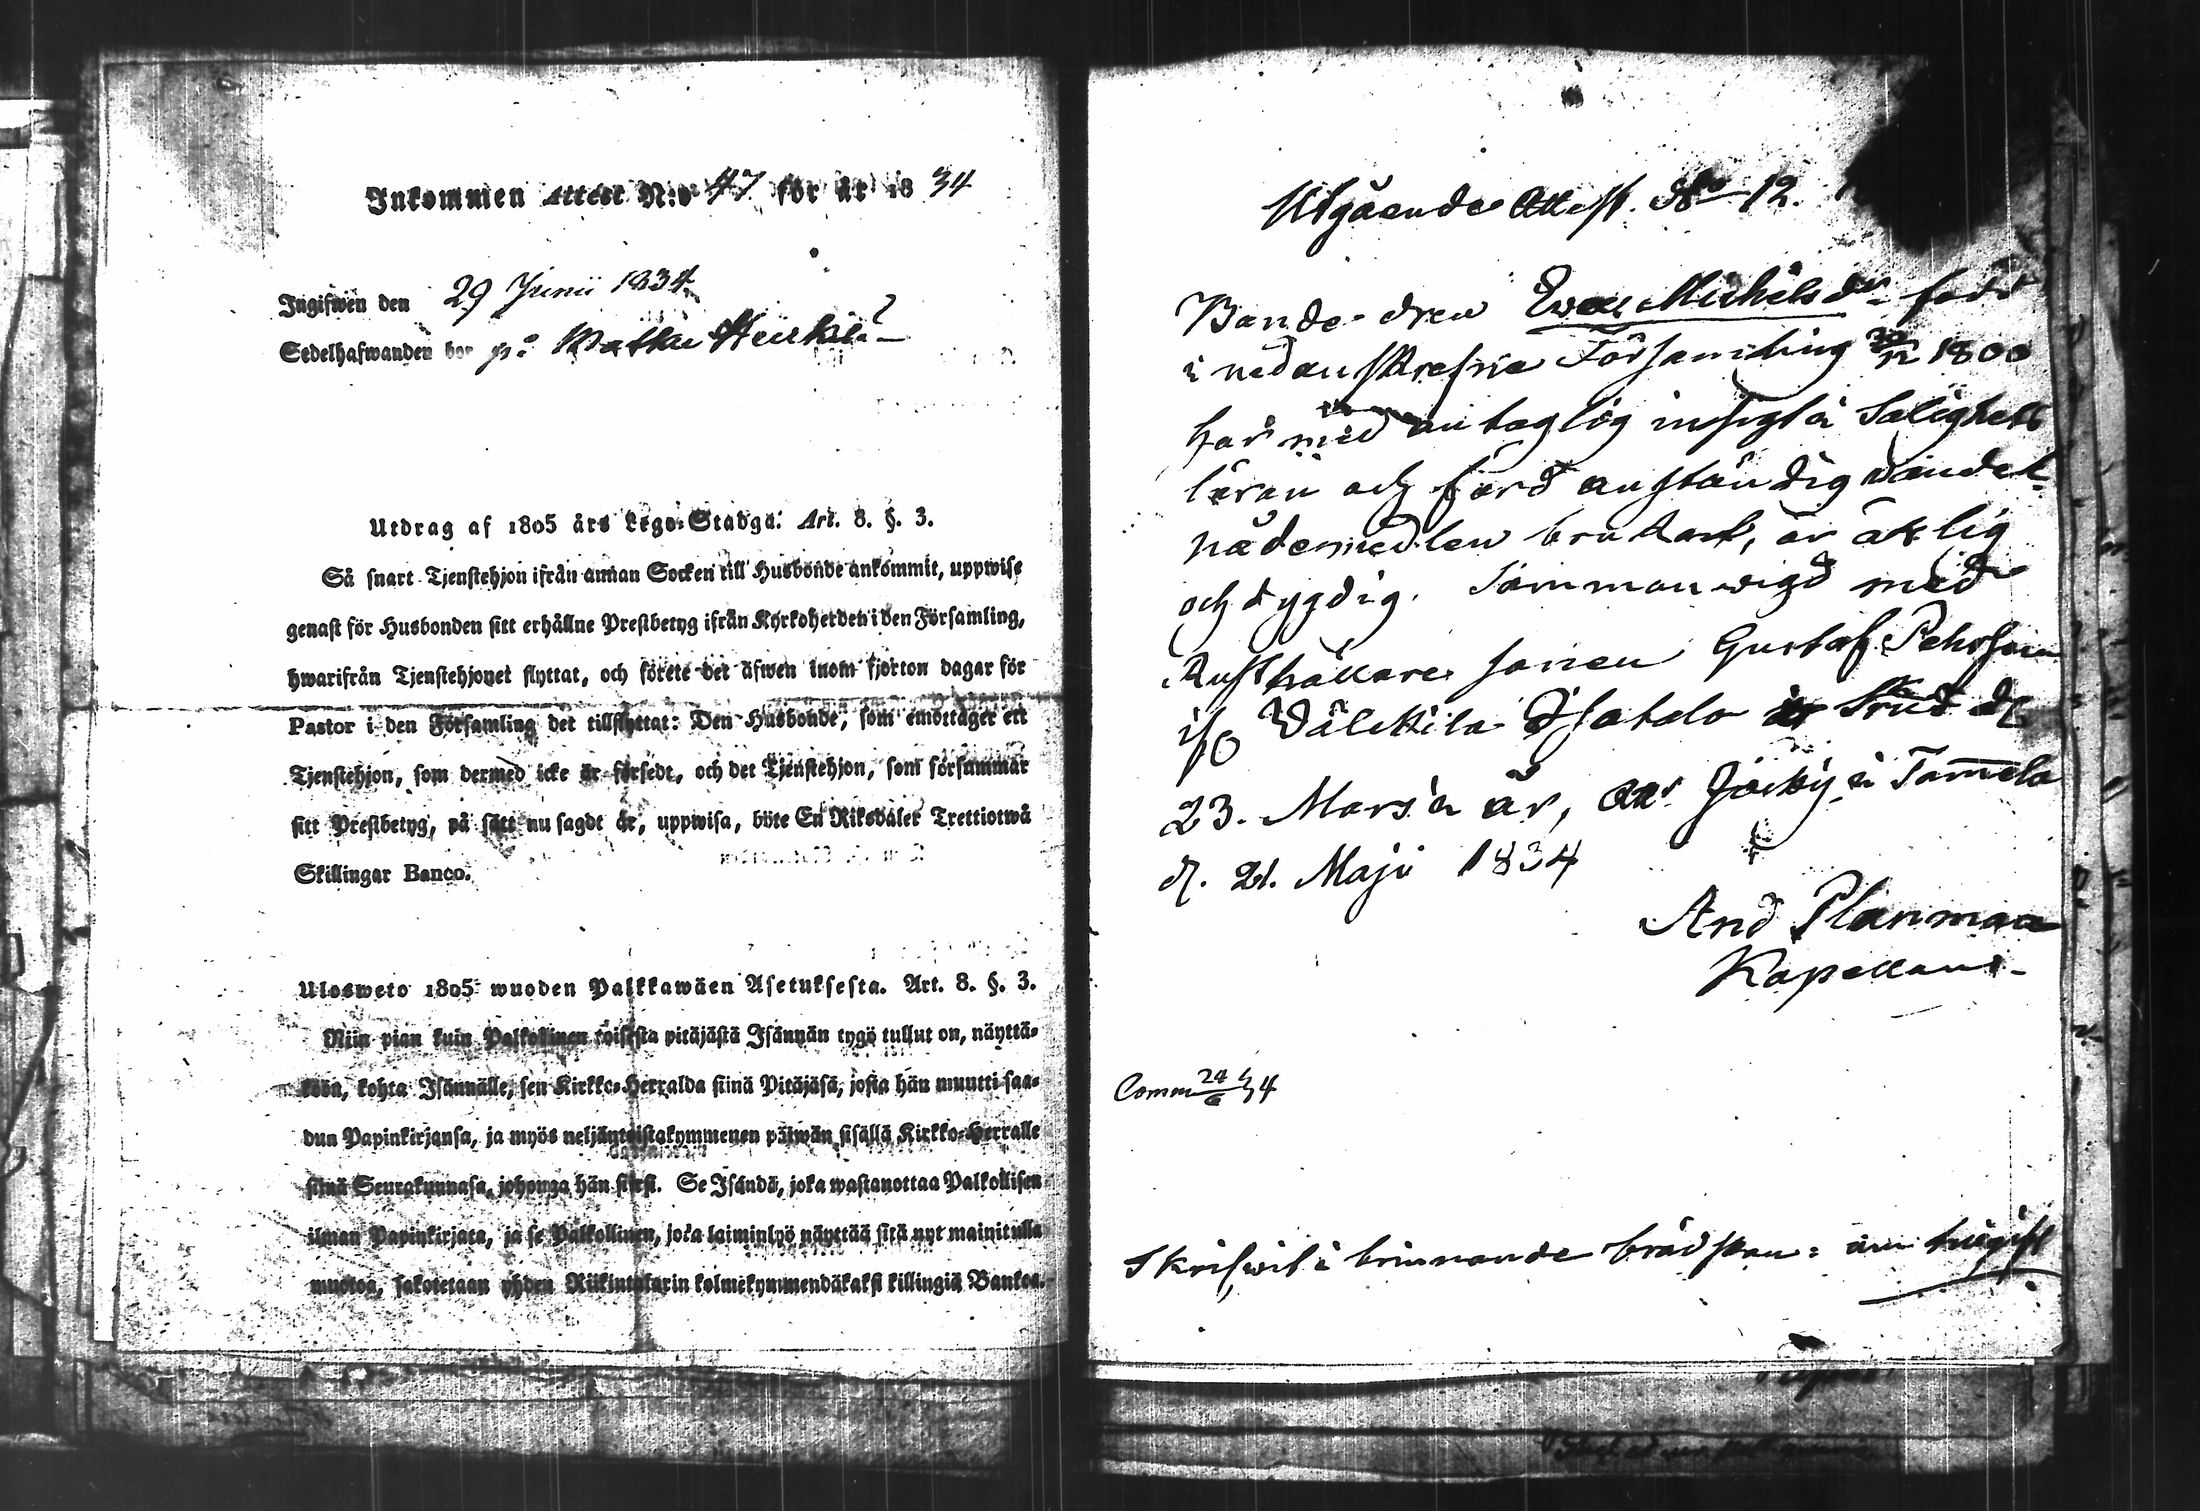 Inkommen Attest N:o 47 för år 18 34
Ingifwen den 29 Junii 1834.
Sedelhafwanden bor på Heikkilä
Utdrag af 1805 års Lego-Stadga. Art. 8. §. 3.
Så snart Tjenstehjon ifrån annan Socken till Husbonde ankommit, uppwise
genast för Husbonden sitt erhållne Prestbetyg ifrån Kyrkoherden i den Församling,
hwarifrån Tjenstehjonet flyttat, och förete det äfwen inom fjorton dagar för
Pastor i den Församling det tillflyttat: Den Husbonde, som emottager ett
Tjenstehjon, som dermed icke är försedt, och det Tjenstehjon, som försummar
sitt Prestbetyg, på sätt nu sagdt är, uppwisa, böte En Riksdaler Trettiotwå
Skillingar Banco.
Ulosweto 1805 wuoden Palkkawäen Asetuksesta. Art. 8. §. 3.
Niin pian kuin Palkollinen toisesta pitäjästä Isännän tygö tullut on, näyttä-
köön, kohta Isännälle, sen Kirkko-Herralda siinä Pitäjäsä, josta hän muutti saa-
dun Papinkirjansa, ja myös neljäntoistakymmenen päiwän sisällä Kirkko-Herralle
siinä Seurakunnasa, johonga hän siirsi. Se Isändä, joka wastanottaa Palkollisen
ilman Papinkirjata, ja se Palkollinen, joka laiminlyö näyttää sitä nyt mainitulla
muotoa, sakotetaan yhden Riikintalarin kolmekymmendäkaksi killingiä Bankos.
Utgående Attest. No 12.
Bonde-dren Eva Michelsdr född
i nedanskrefne Församling 30/12 1800
har med antaglig insigt i Salighets
läran och förd anständig vandel
nådemedlen brukat, är ärlig
och dygdig. Sammanvigd med
Rusthållare sonen Gustaf Pehrsson
ifr Välckilä Isotalo d.
23. Mars i år, Att. Jockis i Tammela
d. 21. Maji 1834
And Planman
Kapellan.
Comm 24/6 34
Skrifwit i brinnande brådskan: